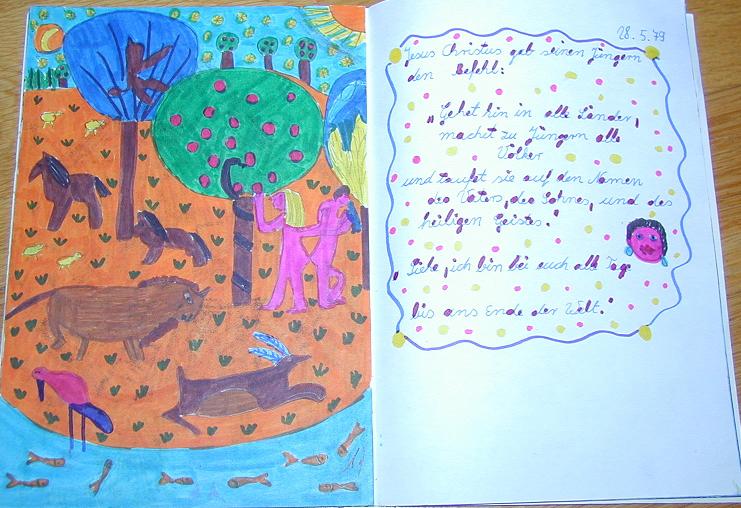 28.5.79
Jesus Christus gab seinen Jüngern
den Befehl:
"Gehet hin in alle Länder,
machet zu Jüngern alle
Völker
und taufet sie auf den Namen
des Vaters, des Sohnes, und des
heiligen Geistes."
"Siehe, ich bin bei euch alle Tage
bis ans Ende der Welt."